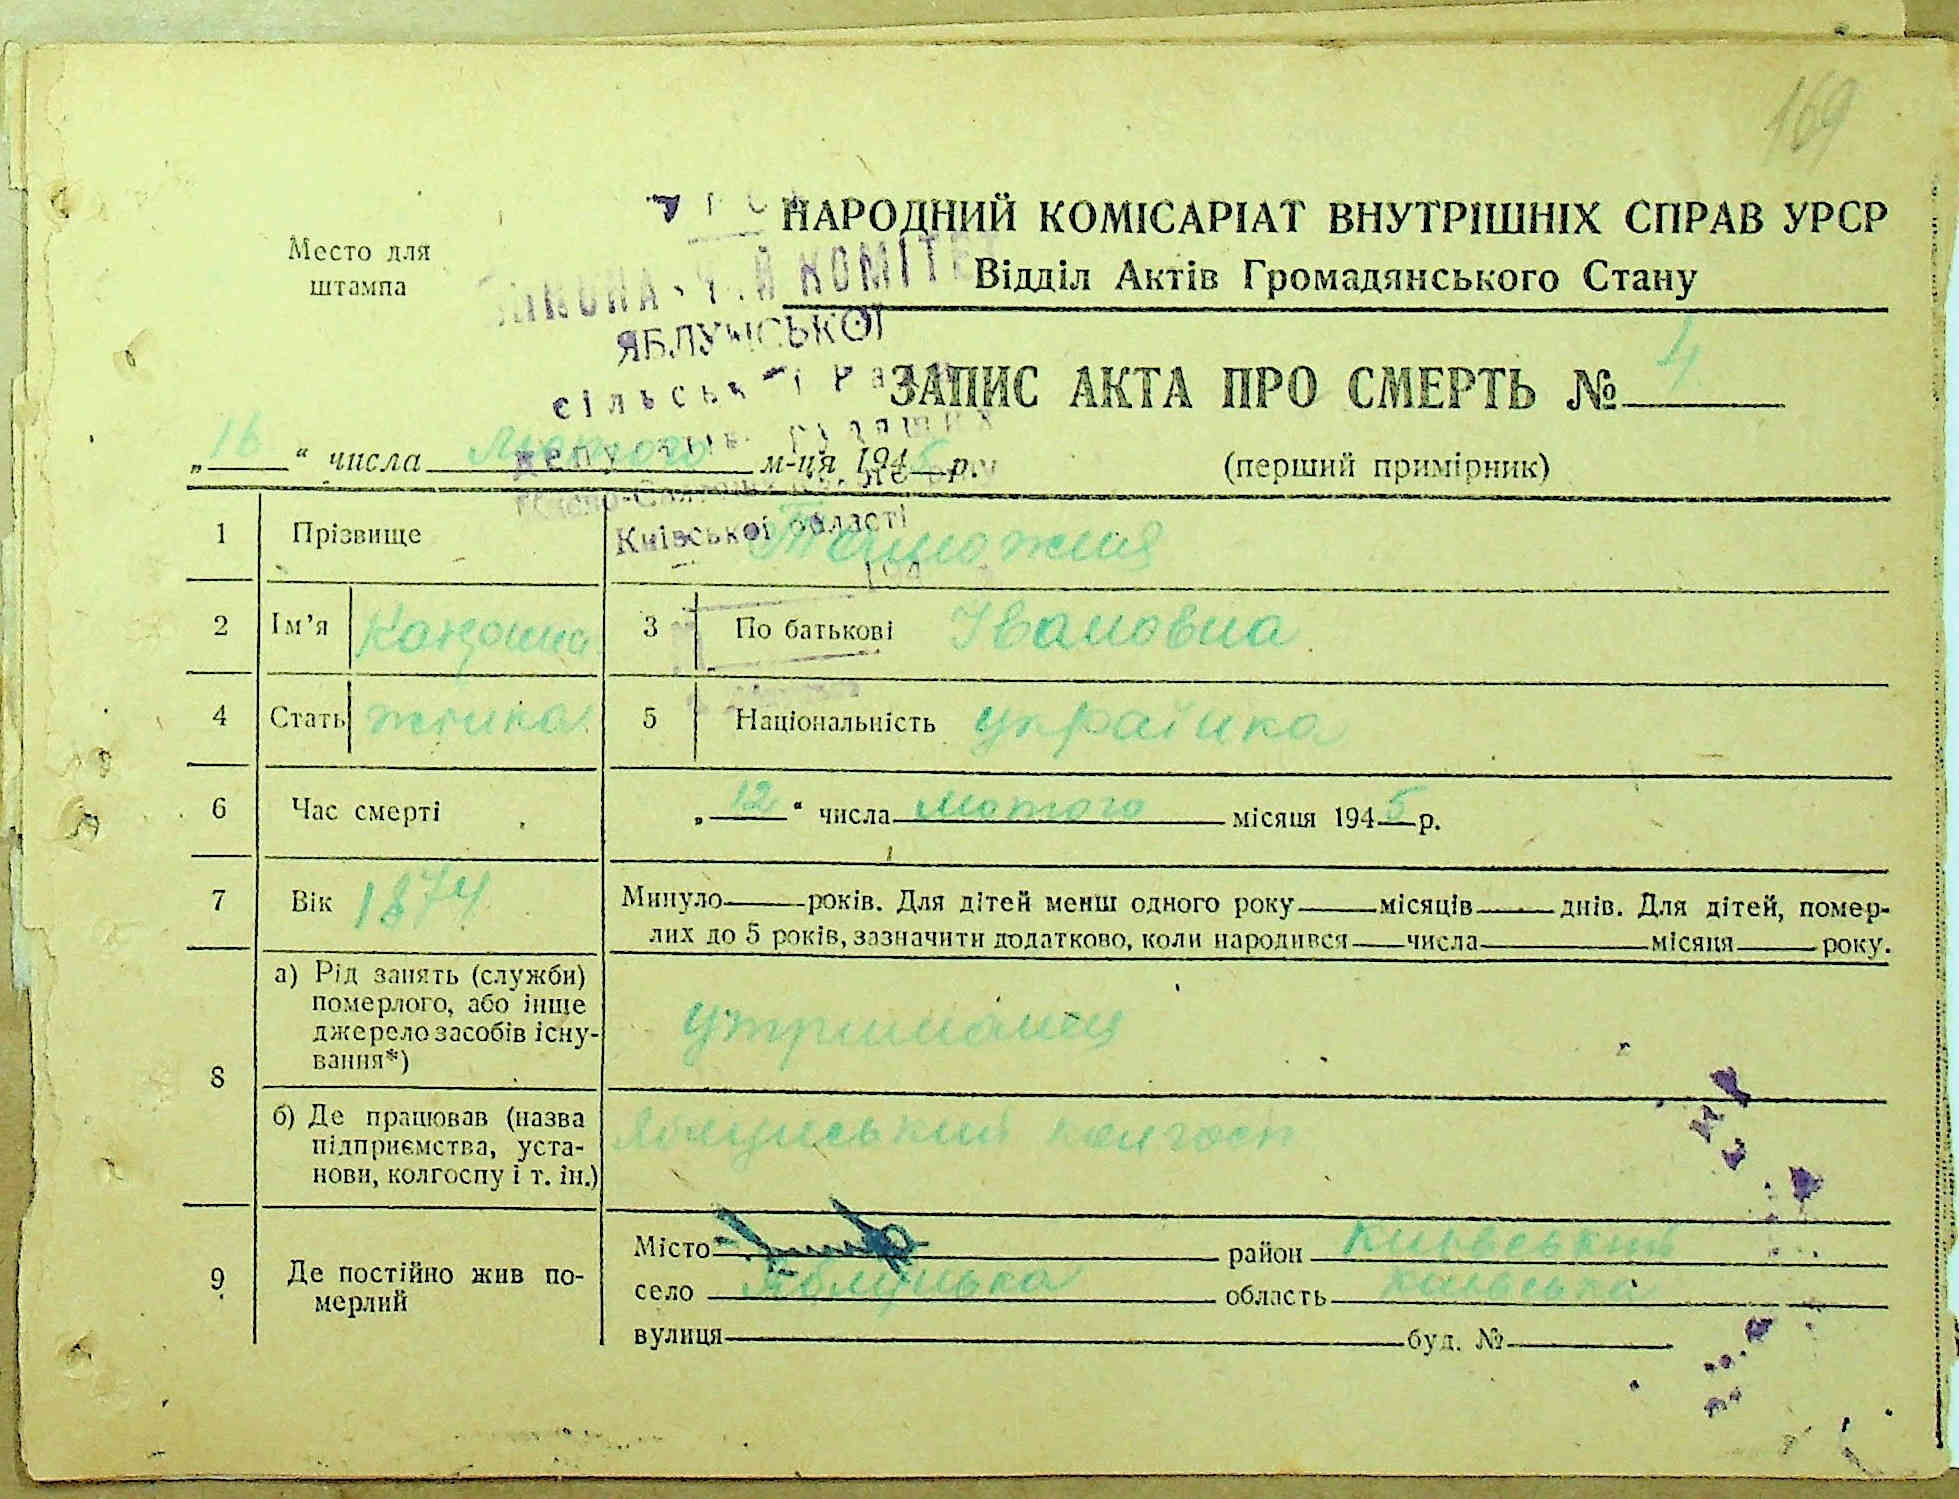 169
Место для
штампа
НАРОДНИЙ КОМІСАРІАТ ВНУТРІШНІХ СПРАВ УРСР
Відділ Актів Громадянського Стану
КОМІТЕ
ЯБЛУНСЬКОЇ
ЗАПИС АКТА ПРО СМЕРТЬ № 4
„16“ числа лютого м-ця 1945 р.
(перший примірник)
Київської області
1 Прізвище
2 Ім’я
3 По батькові Івановна
4 Стать жінка
5 Національність українка
6 Час смерті „12“ числа лютого місяця 1945 р.
7 Вік 1874 Минуло — років. Для дітей менш одного року — місяців — днів. Для дітей, помер-
лих до 5 років, зазначити додатково, коли народився — числа — місяця — року.
8 а) Рід занять (служби)
померлого, або інще
джерело засобів існу-
вання*)
утриманец
б) Де працював (назва
підприємства, уста-
нови, колгоспу і т. ін.)
Яблунський колгосп
9 Де постійно жив по-
мерлий
Місто район
село область
вулиця буд. №